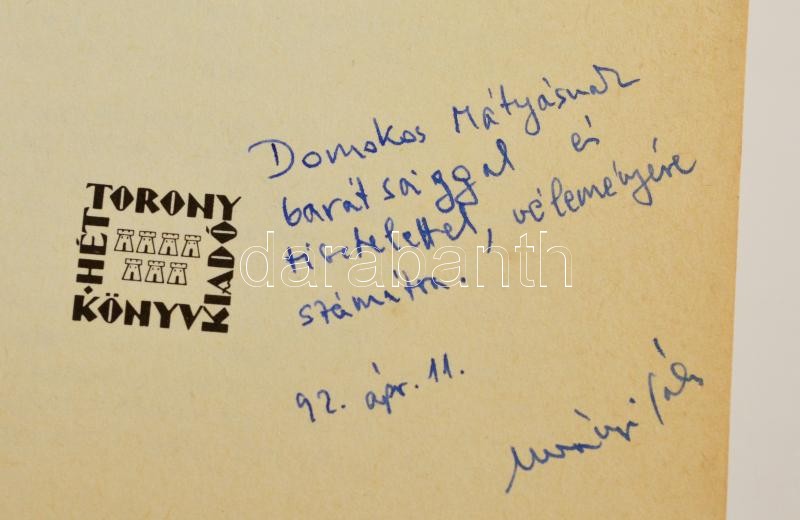 HÉT TORONY
KÖNYVKIADÓ
Domokos Mátyásnak
barátsággal és
tisztelettel, véleményére
számítva.
92. ápr. 11.
darabanth